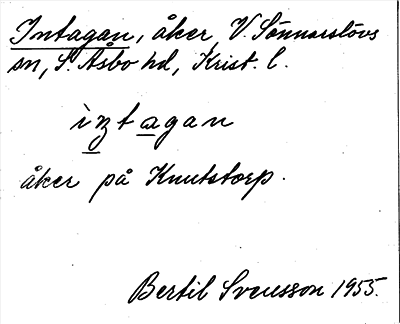 Intagan, åker, V. Sönnarslövs
sn, S. Åsbo hd, Krist. l.
intagan
åker på Knutstorp.
Bertil Svensson 1955.